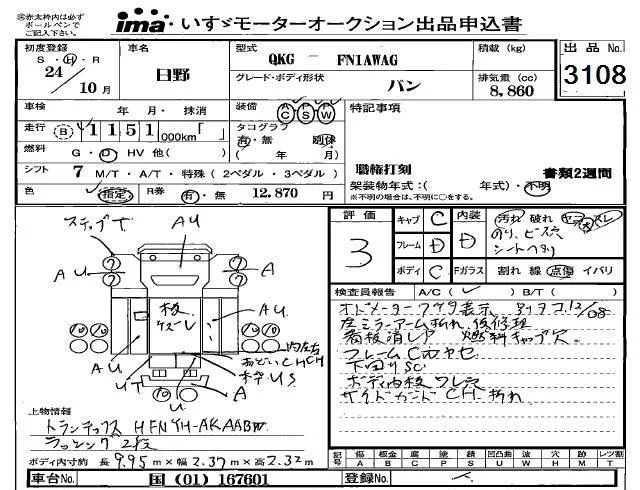 ㊟赤太枠内は必ず
ボールペンで
ご記入下さい。
ima いすゞモーターオークション出品申込書
初度登録
S・H・R
24
10 月
車名
日野
型式
QKG ― FN1AWAG
グレード・ボディ形状
バン
積載 (kg)
排気量 (cc)
8,860
出品 No.
3108
車検 年 月・ 抹消
走行 B 1151 000km「 」
燃料 G・D HV 他( )
シフト 7 M/T・A/T・特殊(2ペダル・3ペダル)
色 指定 R券 有・無 12,870 円
装備 A P A
C S W
タコグラフ
有・無
( 年 月)
特記事項
職権打刻 書類2週間
架装物年式:( 年式)・不明
※不明の場合は、不明に○をする。
ステップT
AU
AU
A
AU
AU
UT
US
U
A
上物情報
トランテックス HFNYH-AKAABW
ラッシング2段
ボディ内寸約 長 9.95 m×幅 2.37 m×高 2.32 m
評価
3
キャブ C
フレーム D
ボディ C
内装
D
Fガラス
汚れ 破れ ヤニ スレ
のり、ビス穴
シートヘタリ
割れ 線 点傷 イバリ
検査員報告 A/C( ) B/T( )
左ミラーアーム折れ、後修理
看板消しP 燃料キャップ欠
フレームCカヤセ
下回りSC
ボディ内板ワレ穴
サイドガードCH.折れ
記号 傷 板金 腐 塗 錆 凹凸曲 波 穴 跡 レンズ割
A B C P S U W H M T
車台No. 国 (01) 167601 登録No.